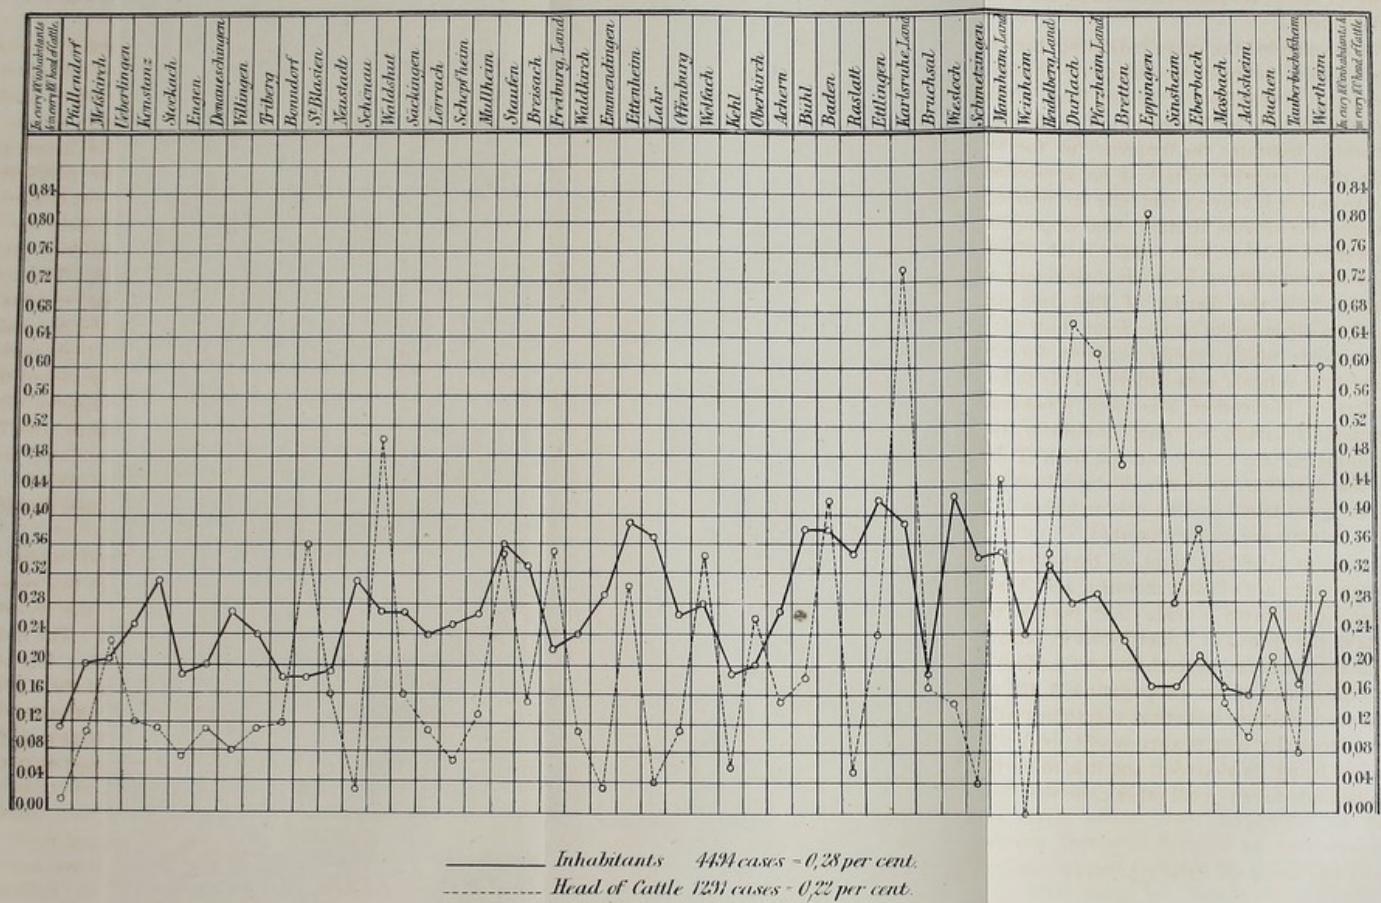 In every 100 inhabitants & in every 100 head of Cattle.
Pfullendorf
Mefskirch
Ueberlingen
Konstanz
Stockach
Engen
Donaueschingen
Villingen
Triberg
Bonndorf
St Blasien
Neustadt
Schönau
Waldshut
Säckingen
Lörrach
Schopfheim
Müllheim
Staufen
Breisach
Freiburg, Land
Waldkirch
Emmendingen
Ettenheim
Lahr
Offenburg
Wolfach
Kehl
Oberkirch
Achern
Bühl
Baden
Rastatt
Ettlingen
Karlsruhe, Land
Bruchsal
Wiesloch
Schwetzingen
Mannheim, Land
Weinheim
Heidelberg, Land
Durlach
Pforzheim, Land
Bretten
Eppingen
Sinsheim
Eberbach
Mosbach
Adelsheim
Buchen
Tauberbischofsheim
Wertheim
In every 100 inhabitants & in every 100 head of Cattle
0,84 0,84
0,80 0,80
0,76 0,76
0,72 0,72
0,68 0,68
0,64 0,64
0,60 0,60
0,56 0,56
0,52 0,52
0,48 0,48
0,44 0,44
0,40 0,40
0,36 0,36
0,32 0,32
0,28 0,28
0,24 0,24
0,20 0,20
0,16 0,16
0,12 0,12
0,08 0,08
0,04 0,04
0,00 0,00
Inhabitants 4494 cases = 0,28 per cent.
Head of Cattle 1291 cases = 0,22 per cent.